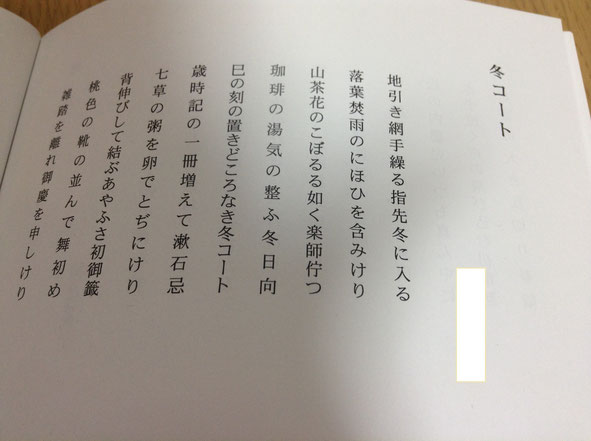 冬コート
地引き網手繰る指先冬に入る
落葉焚雨のにほひを含みけり
山茶花のこぼるる如く薬師佇つ
珈琲の湯気の整ふ冬日向
巳の刻の置きどころなき冬コート
歳時記の一冊増えて漱石忌
七草の粥を卵でとぢにけり
背伸びして結ぶあやふさ初御籤
桃色の靴の並んで舞初め
雑踏を離れ御慶を申しけり